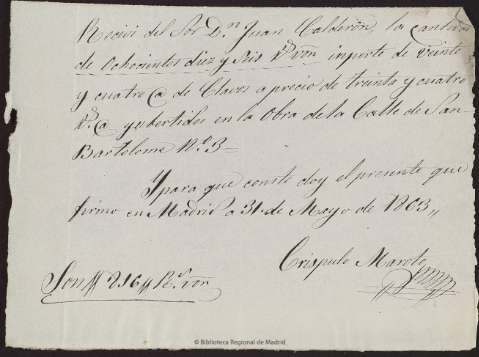 Recivi del Sor Dn. Juan Calderón, la cantidad
de Ochocientos diez y seis Rs. von importe de veinte
y cuatro @ de Clavos a precio de treinta y cuatro
Rs. @ ynbertidos en la Obra de la Calle de San
Bartolome No. 3=
Ypara que conste doy el presente que
firmo en Madrid a 31 de Mayo de 1803,,
Crispulo Marote
Son # 816 # Rs. von
© Biblioteca Regional de Madrid